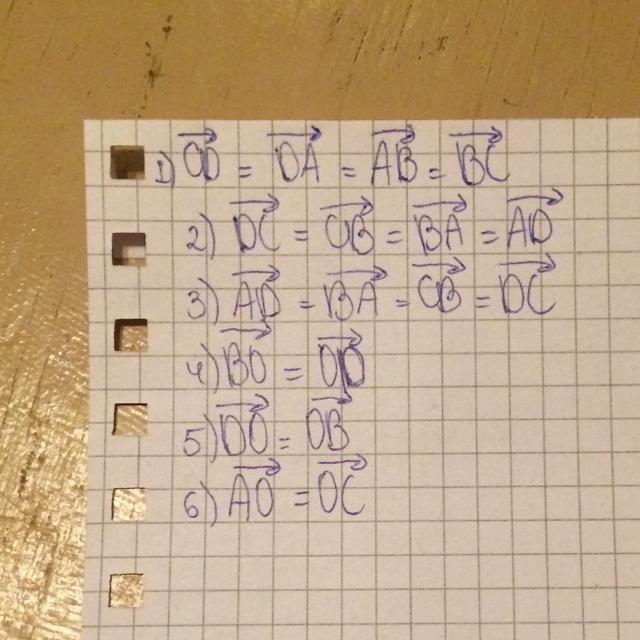 1) CD = DA = AB = BC
2) DC = CB = BA = AD
3) AD = BA = CB = DC
4) BO = OD
5) DO = OB
6) AO = OC